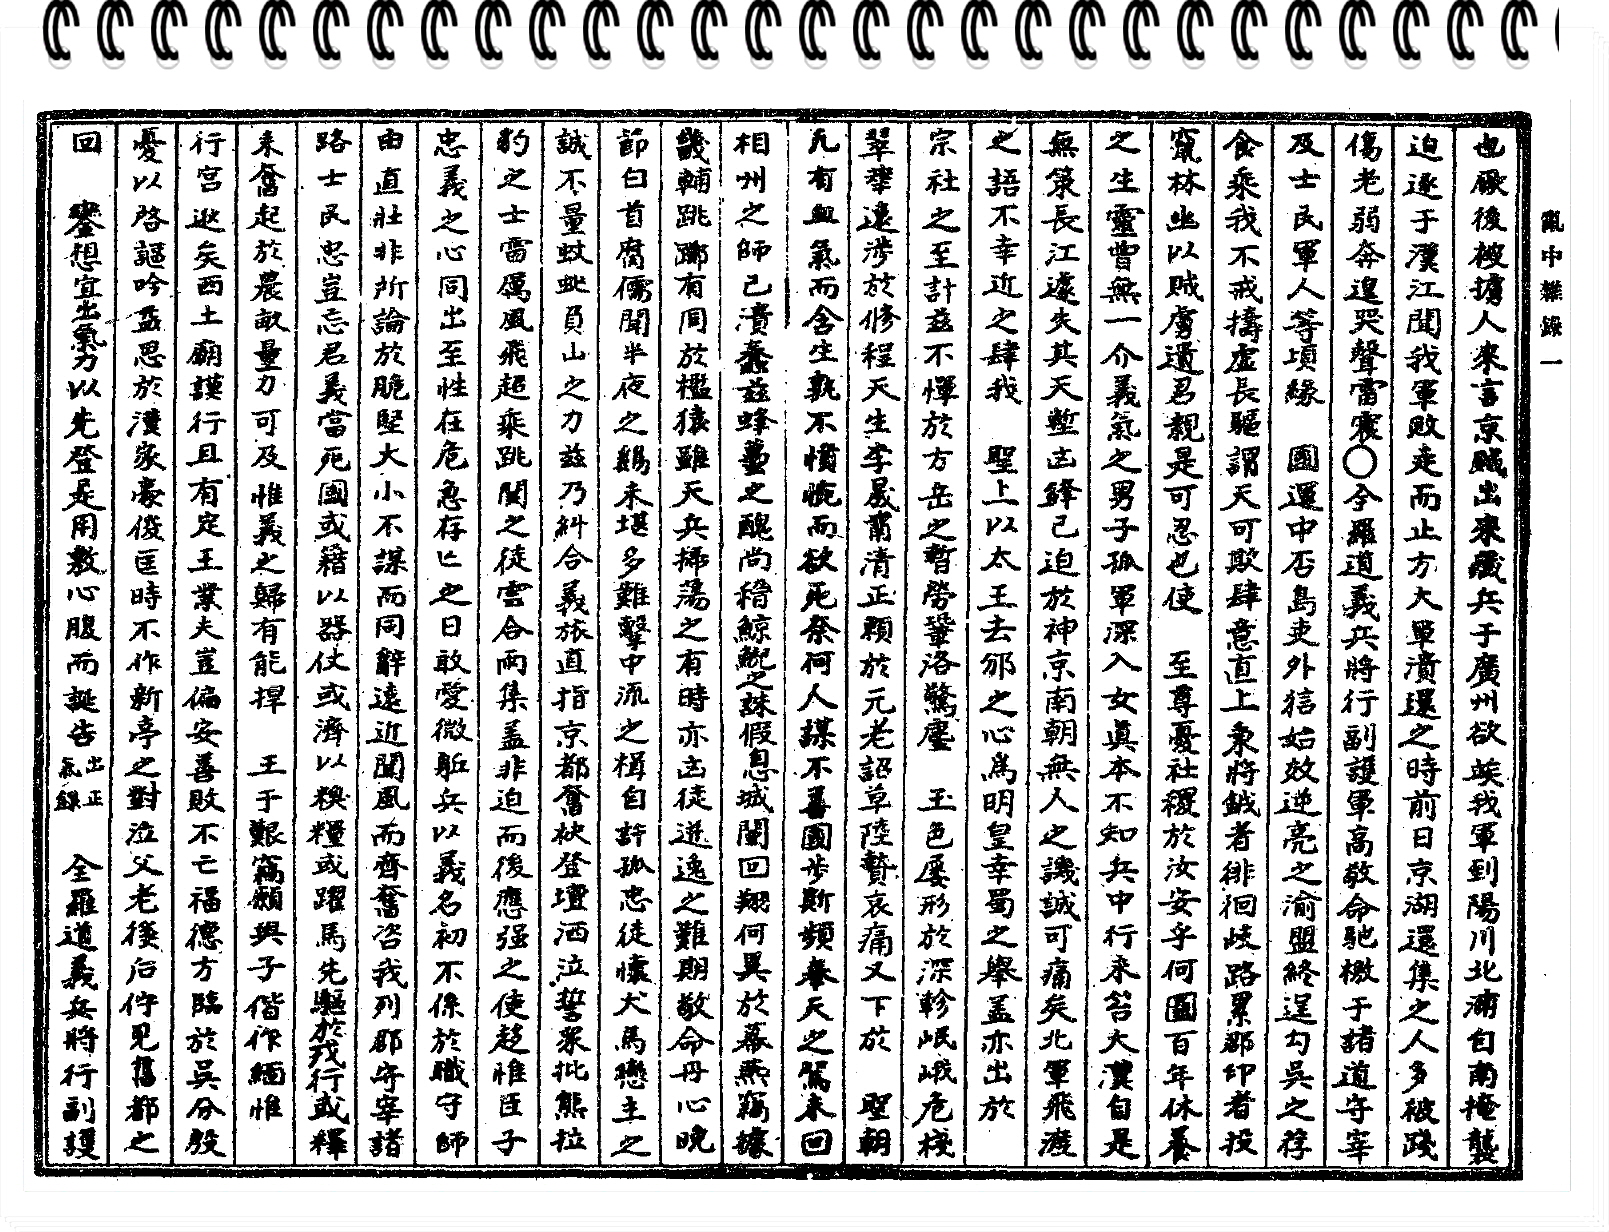 亂中雜錄 一
也厥後被擄人來言京賊出來殲兵于廣州欲竢我軍到陽川北浦自南掩襲
迫逐于漢江聞我軍敗走而止方大軍潰還之時前日京湖還集之人多被踐
傷老弱奔遑哭聲雷震〇全羅道義兵將行副護軍高敬命馳檄于諸道守宰
及士民軍人等項緣 國運中否島夷外狺始效逆亮之渝盟終逞勾吳之荐
食乘我不戒擣虛長驅謂天可欺肆意直上秉將鉞者徘徊岐路累郡印者投
竄林幽以賊虜遺君親是可忍也使 至尊憂社稷於汝安乎何圖百年休養
之生靈曾無一介義氣之男子孤軍深入女眞本不知兵中行未笞大漢自是
無策長江遽失其天塹凶鋒已迫於神京南朝無人之譏誠可痛矣北軍飛渡
之語不幸近之肆我 聖上以太王去邠之心爲明皇幸蜀之擧盖亦出於
宗社之至計玆不憚於方岳之暫勞鞏洛驚塵 玉色屢形於深軫岷峨危棧
翠華遠涉於修程天生李晟肅清正賴於元老詔草陸贄哀痛又下於 聖朝
凡有血氣而含生孰不憤惋而欲死奈何人謀不善國步斯頻奉天之駕未回
相州之師已潰蠢玆蜂蠆之醜尚稽鯨鯢之誅假息城闉回翔何異於幕燕竊據
畿輔跳踉有同於檻猿雖天兵掃蕩之有時亦凶徒迸逸之難期敬命丹心晩
節白首腐儒聞半夜之鷄未堪多難擊中流之楫自許孤忠徒懷犬馬戀主之
誠不量蚊蚋負山之力玆乃糾合義旅直指京都奮袂登壇洒泣誓衆批熊拉
豹之士雷厲風飛超乘跳關之徒雲合雨集盖非迫而後應强之使趍惟臣子
忠義之心同出至性在危急存亡之日敢愛微軀兵以義名初不係於職守師
由直壯非所論於脆堅大小不謀而同辭遠近聞風而齊奮咨我列郡守宰諸
路士民忠豈忘君義當死國或藉以器仗或濟以糗糧或躍馬先驅於戎行或釋
耒奮起於農畝量力可及惟義之歸有能捍 王于艱竊願與子偕作緬惟
行宮逖矣西土廟謨行且有定王業夫豈偏安善敗不亡福德方臨於吳分殷
憂以啓謳吟益思於漢家豪俊匡時不作新亭之對泣父老徯后佇見舊都之
回 鑾想宜出氣力以先登是用敷心腹而誕告 出正氣錄 全羅道義兵將行副護